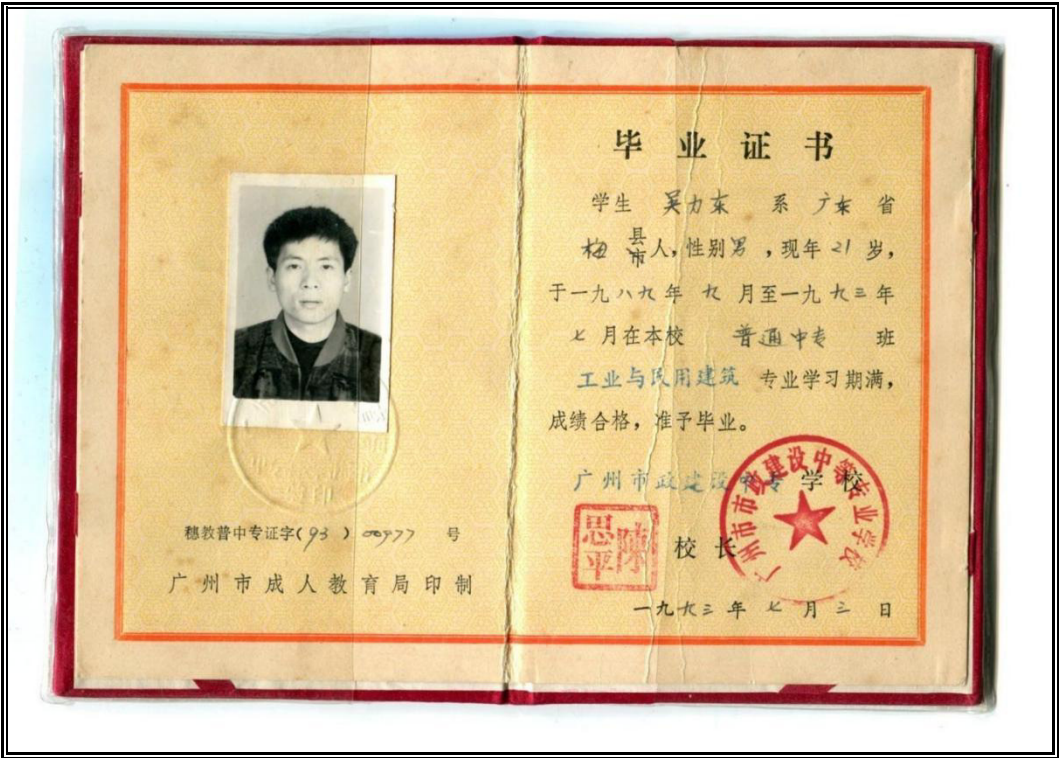 穗教普中专证字(93)00977号
广州市成人教育局印制
毕业证书
学生 吴力东 系 广东 省
梅 县市人，性别男，现年21岁，
于一九八九年九月至一九九三年
七月在本校 普通中专 班
工业与民用建筑 专业学习期满，
成绩合格，准予毕业。
广州市政建设中专 学校
广州市市政建设中等专业学校
校长
陳思平
一九九三年七月三日